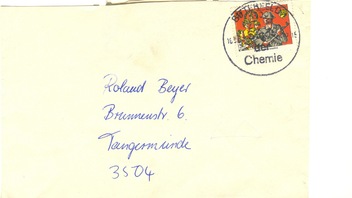 BITTERFELD
der
Chemie
Roland Beyer
Brunnenstr. 6
Tangermünde
3504